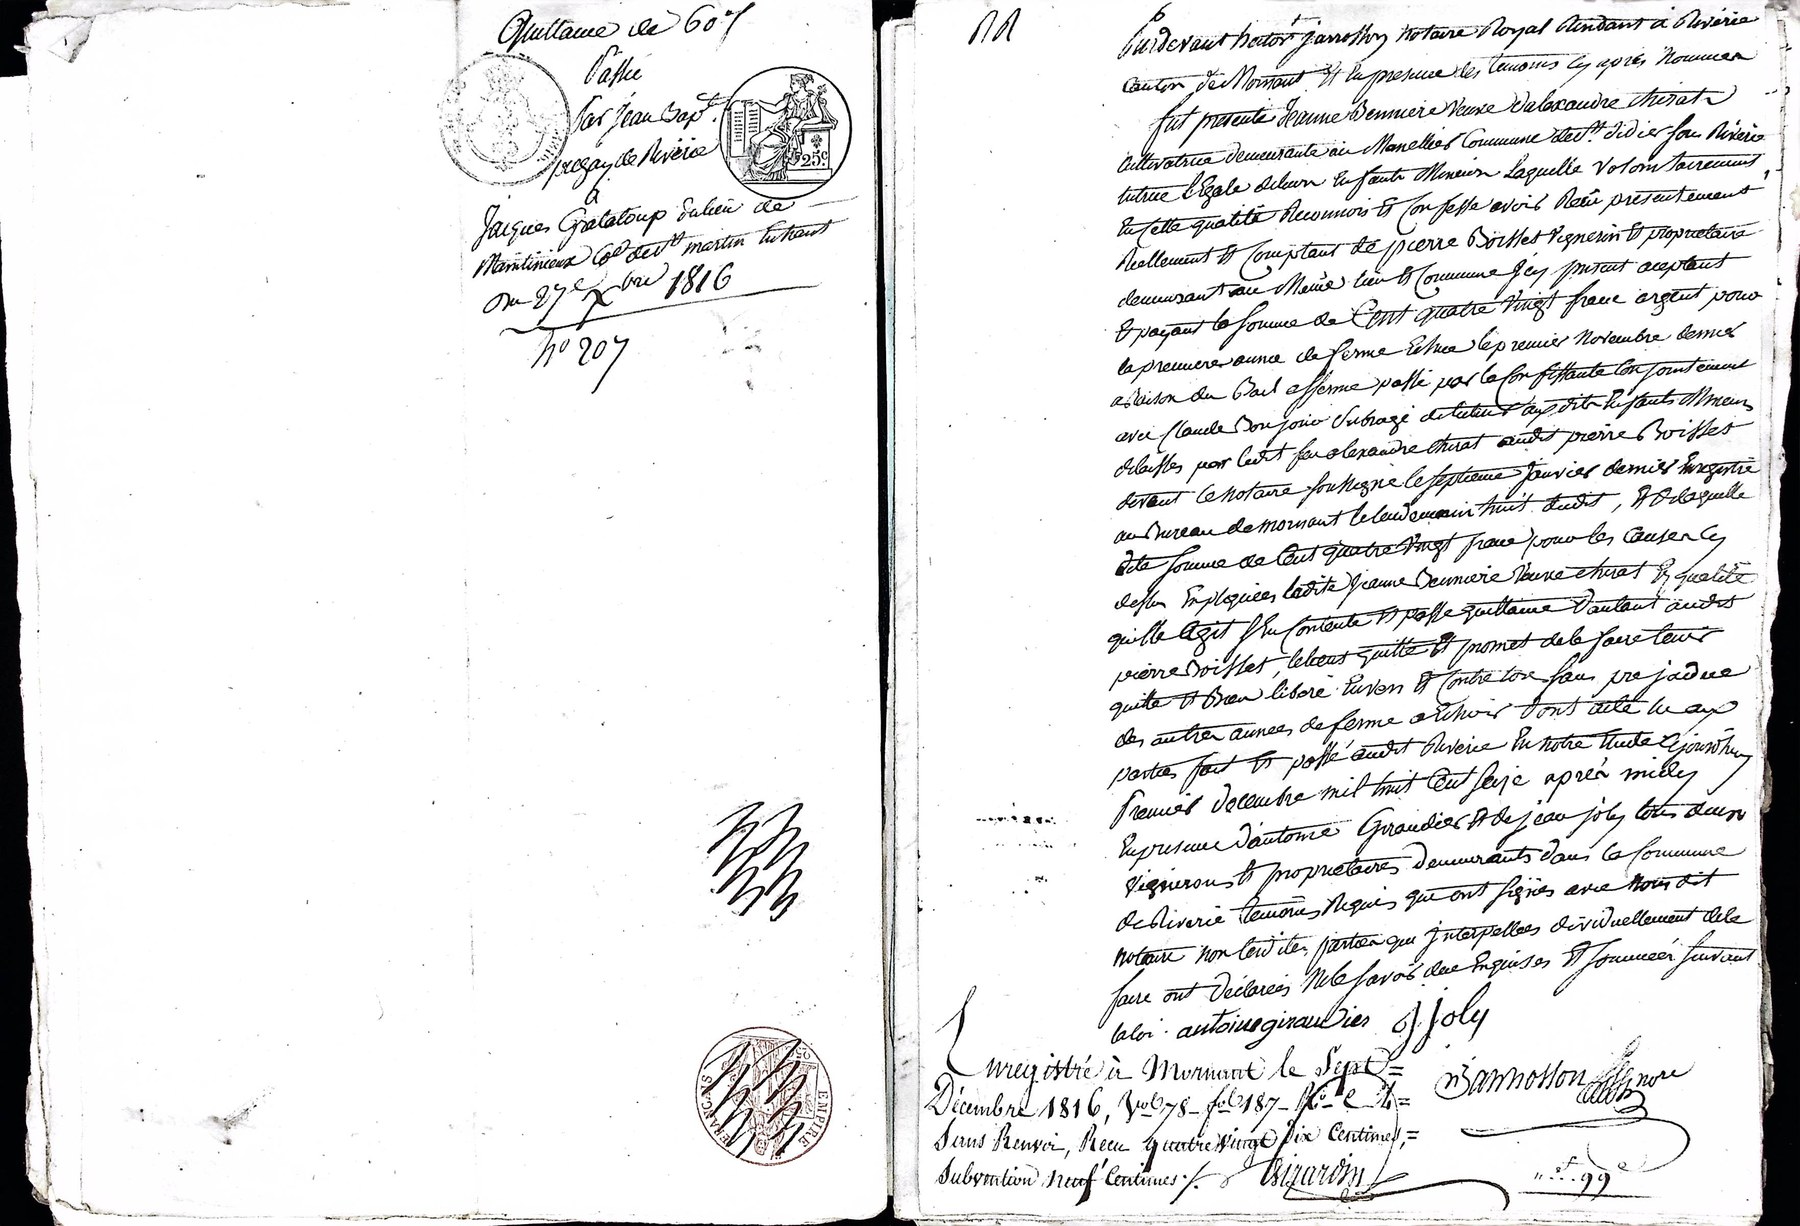 Quittance de 60 f
Passée
Par Jean Bapt.
pregay de Riverie
à
Jacques Grataloup du lieu de
Martinieux Cne de St martin En haut
Du 27e Xbre 1816
no 207
25 c
EMPIRE FRANÇAIS
Pardevant hector jannosson notaire Royal Résidant à Riverie
canton de Mornant Et En presence des temoins cy après Nommés
fut presente Jeanne Bonniere Veuve d'alexandre thirat
cultivatrice demeurante au Commune de St. didier sous Riverie
tutrice legale de leurs Enfants Mineurs Laquelle volontairement
En cette qualité Reconnois Et Confesse avoir Reçu présentement
Reellement Et Comptant de pierre Boisset vigneron Et propriétaire
demeurant au Même lieu Et Commune Icy présent aceptant
Et payant la somme de Cent quatre Vingt franc argent pour
la premiere année de ferme Echue le premier Novembre dernier
a Raison du Bail afferme passé par la Confessante Conjointement
avec Claude Bonjour Subrogé de tuteur aux dits Enfants Mineurs
délaissés par ledit feu alexandre thirat audit pierre Boisset
devant le notaire soussigné le septieme Janvier dernier Enregistré
au Bureau de mornant le lendemain huit dudit, Et de laquelle
dite somme de Cent quatre Vingt franc pour les causes cy
dessus Expliquées ladite Jeanne Bonniere Veuve thirat En qualité
qu'elle Agit s'En Contente Et passe quittance d'autant audit
pierre Boisset, le tient quitte Et promet de le faire tenir
quitte Et Bien libéré Envers Et Contre tous sans prejudice
des autres années de ferme a Echoir Dont acte lu aux
parties fait Et passé audit Riverie En notre Etude Cejourd'huy
Premier Décembre mil huit Cent seize après midy
En presence d'antoine Giraudier Et de jean joly tous deux
Vignerons Et propriétaires Demeurants dans la Commune
de Riverie temoins Requis qui ont signés avec Nous dit
notaire non lesdites parties qui Interpellées dividuellement de le
faire ont déclarées Ne le savoir de ce Enquises Et sommées suivant
la loi. antoine giraudier J. Joly
Enregistré à Mornant le Sept =
Décembre 1816, Vol. 78 - fol. 187 - Ro C
Sans Renvoi, Reçu quatre vingt Dix Centimes, =
Subvention Neuf Centimes ./.
Girardin
Jannosson
" f. 99 c